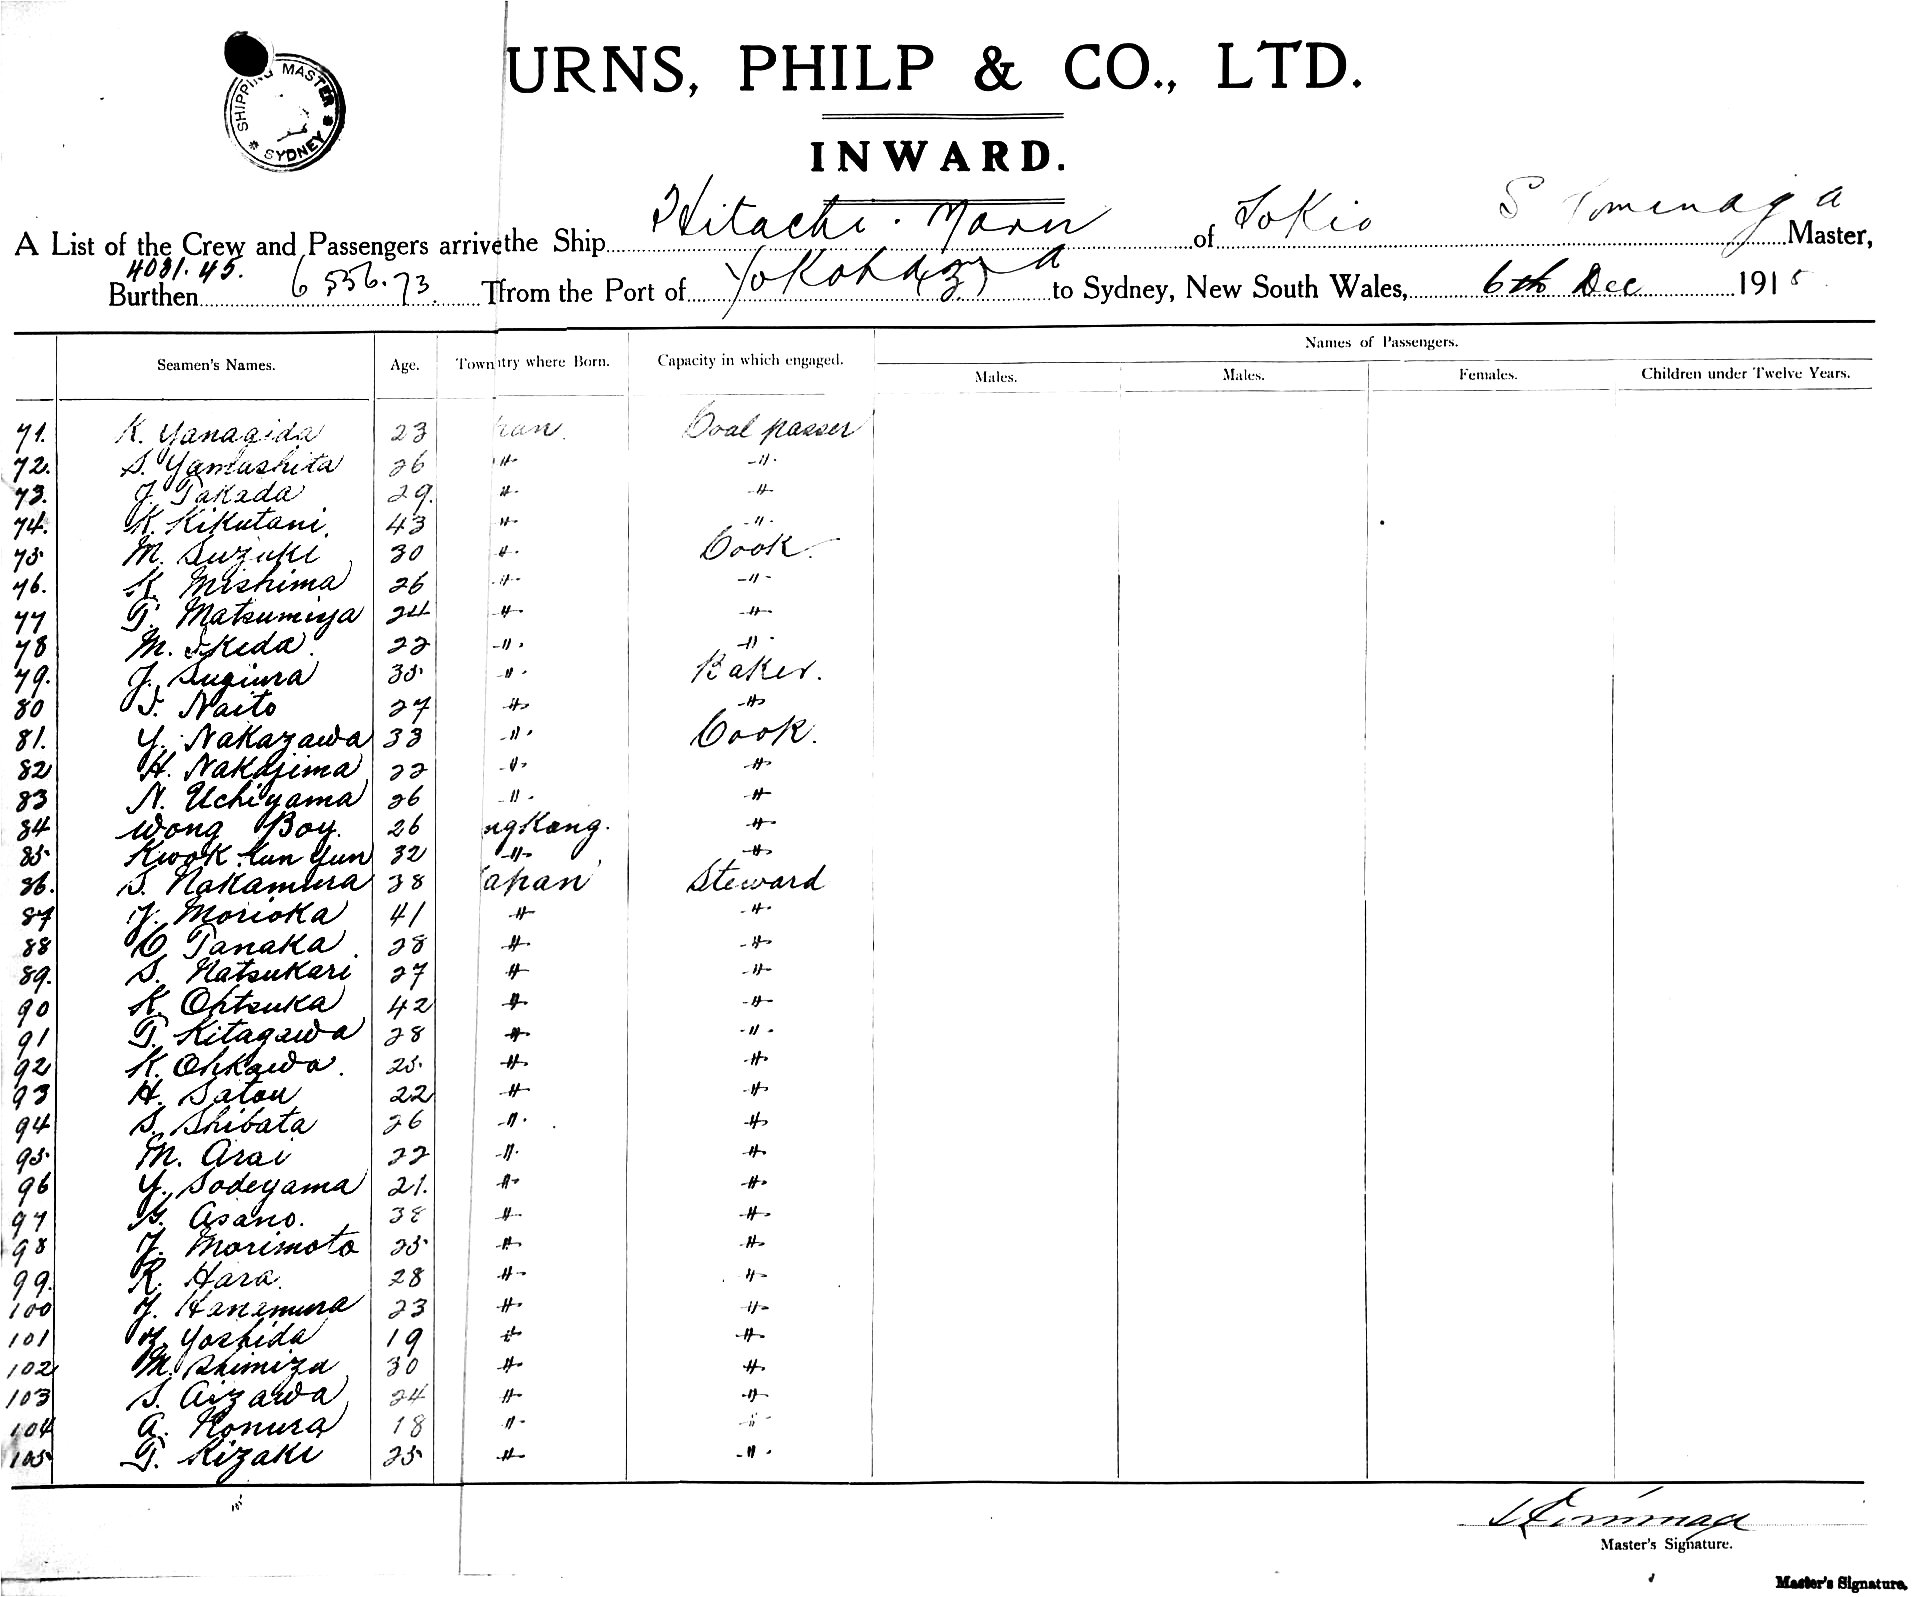 SHIPPING MASTER
* SYDNEY *
URNS, PHILP & CO., LTD.
INWARD.
A List of the Crew and Passengers arrive the Ship Hitachi Maru of Tokio S Tominaga Master,
4081.45.
Burthen 6,556.73 from the Port of Yokohama to Sydney, New South Wales, 6th Dec 1915
Names of Passengers.
Seamen's Names. Age. Town ntry where Born. Capacity in which engaged. Males. Males. Females. Children under Twelve Years.
71. K. Yanagida 23 pan. Coal passer
72. S. Yamashita 26 -"- -"-
73. J. Takada 29. -"- -"-
74. K. Kikutani. 43 -"- -"-
75. M. Suzuki 30 -"- Cook.
76. K. Mishima 26 -"- -"-
77 T. Matsumiya 24 -"- -"-
78 M. Ikeda. 22 -"- -"-
79. J. Sugiura 35 -"- Baker.
80 I. Naito 27 -"- -"-
81. Y. Nakazawa 33 -"- Cook.
82 H. Nakajima 22 -"- -"-
83 N. Uchiyama 26 -"- -"-
84 Wong Boy. 26 ngKong. -"-
85 Kwok Yun 32 -"- -"-
86. S. Nakamura 38 apan Steward
87 Y. Morioka 41 -"- -"-
88 C Tanaka 28 -"- -"-
89. S. Natsukari 27 -"- -"-
90 K. Ohtsuka 42 -"- -"-
91 T. Kitagawa 28 -"- -"-
92 K. Ohkawa. 25 -"- -"-
93 H. Satou 22 -"- -"-
94 S. Shibata 26 -"- -"-
95 M. Arai 22 -"- -"-
96 Y. Sodeyama 21. -"- -"-
97 G. Asano. 38 -"- -"-
98 J. Morimoto 25 -"- -"-
99. R. Hara. 28 -"- -"-
100 Y. Hanamura 23 -"- -"-
101 Yoshida 19 -"- -"-
102 M. Shimizu 30 -"- -"-
103 S. Aizawa 24 -"- -"-
104 A. Komura 18 -"- -"-
105 T. Kizaki 25 -"- -"-
S Tominaga
Master's Signature.
Master's Signature.